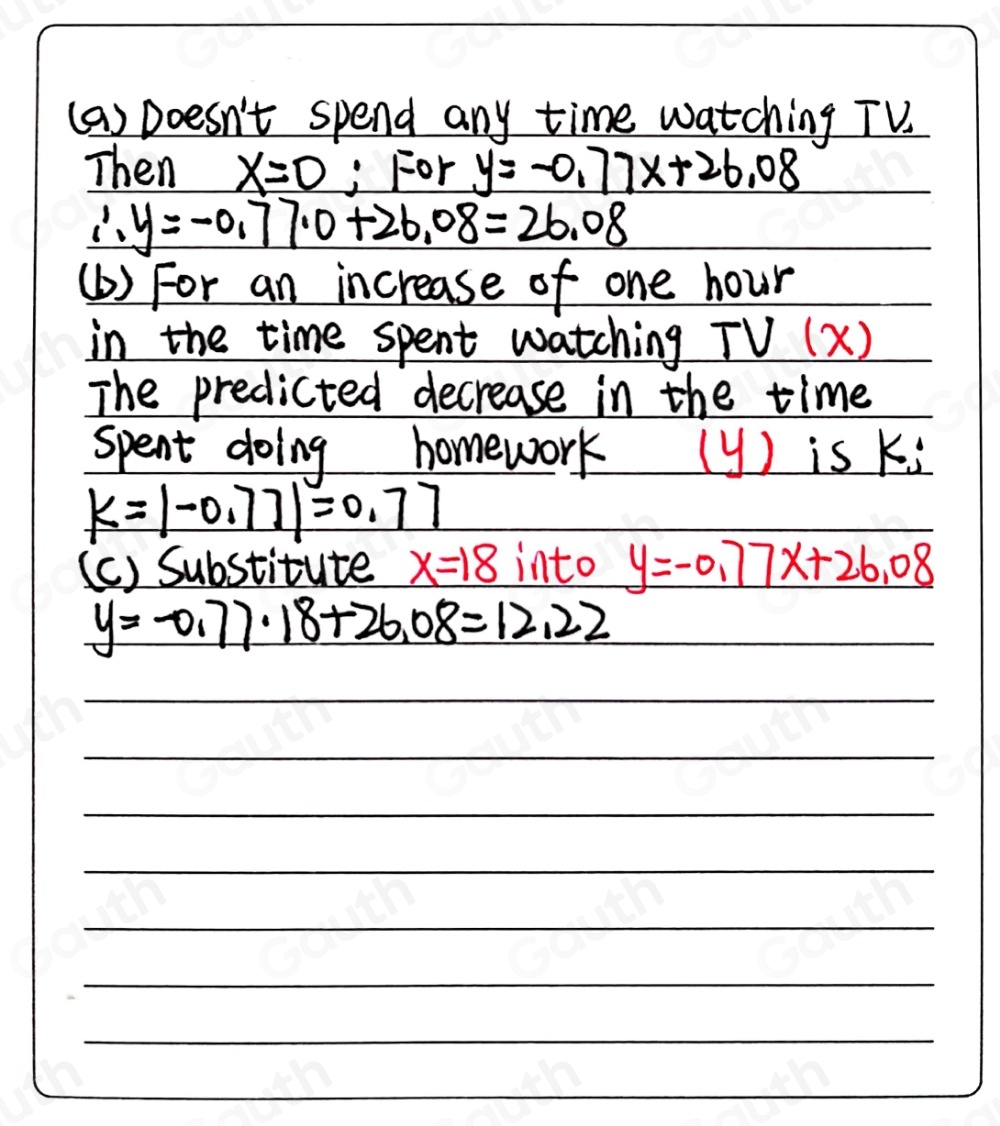 (a) Doesn't spend any time watching TV.
Then x=0 ; For y=-0.77x+26.08
∴ y=-0.77·0+26.08=26.08
(b) For an increase of one hour
in the time spent watching TV (x)
The predicted decrease in the time
spent doing homework (y) is k;
k=|-0.77|=0.77
(c) Substitute x=18 into y=-0.77x+26.08
y=-0.77·18+26.08=12.22